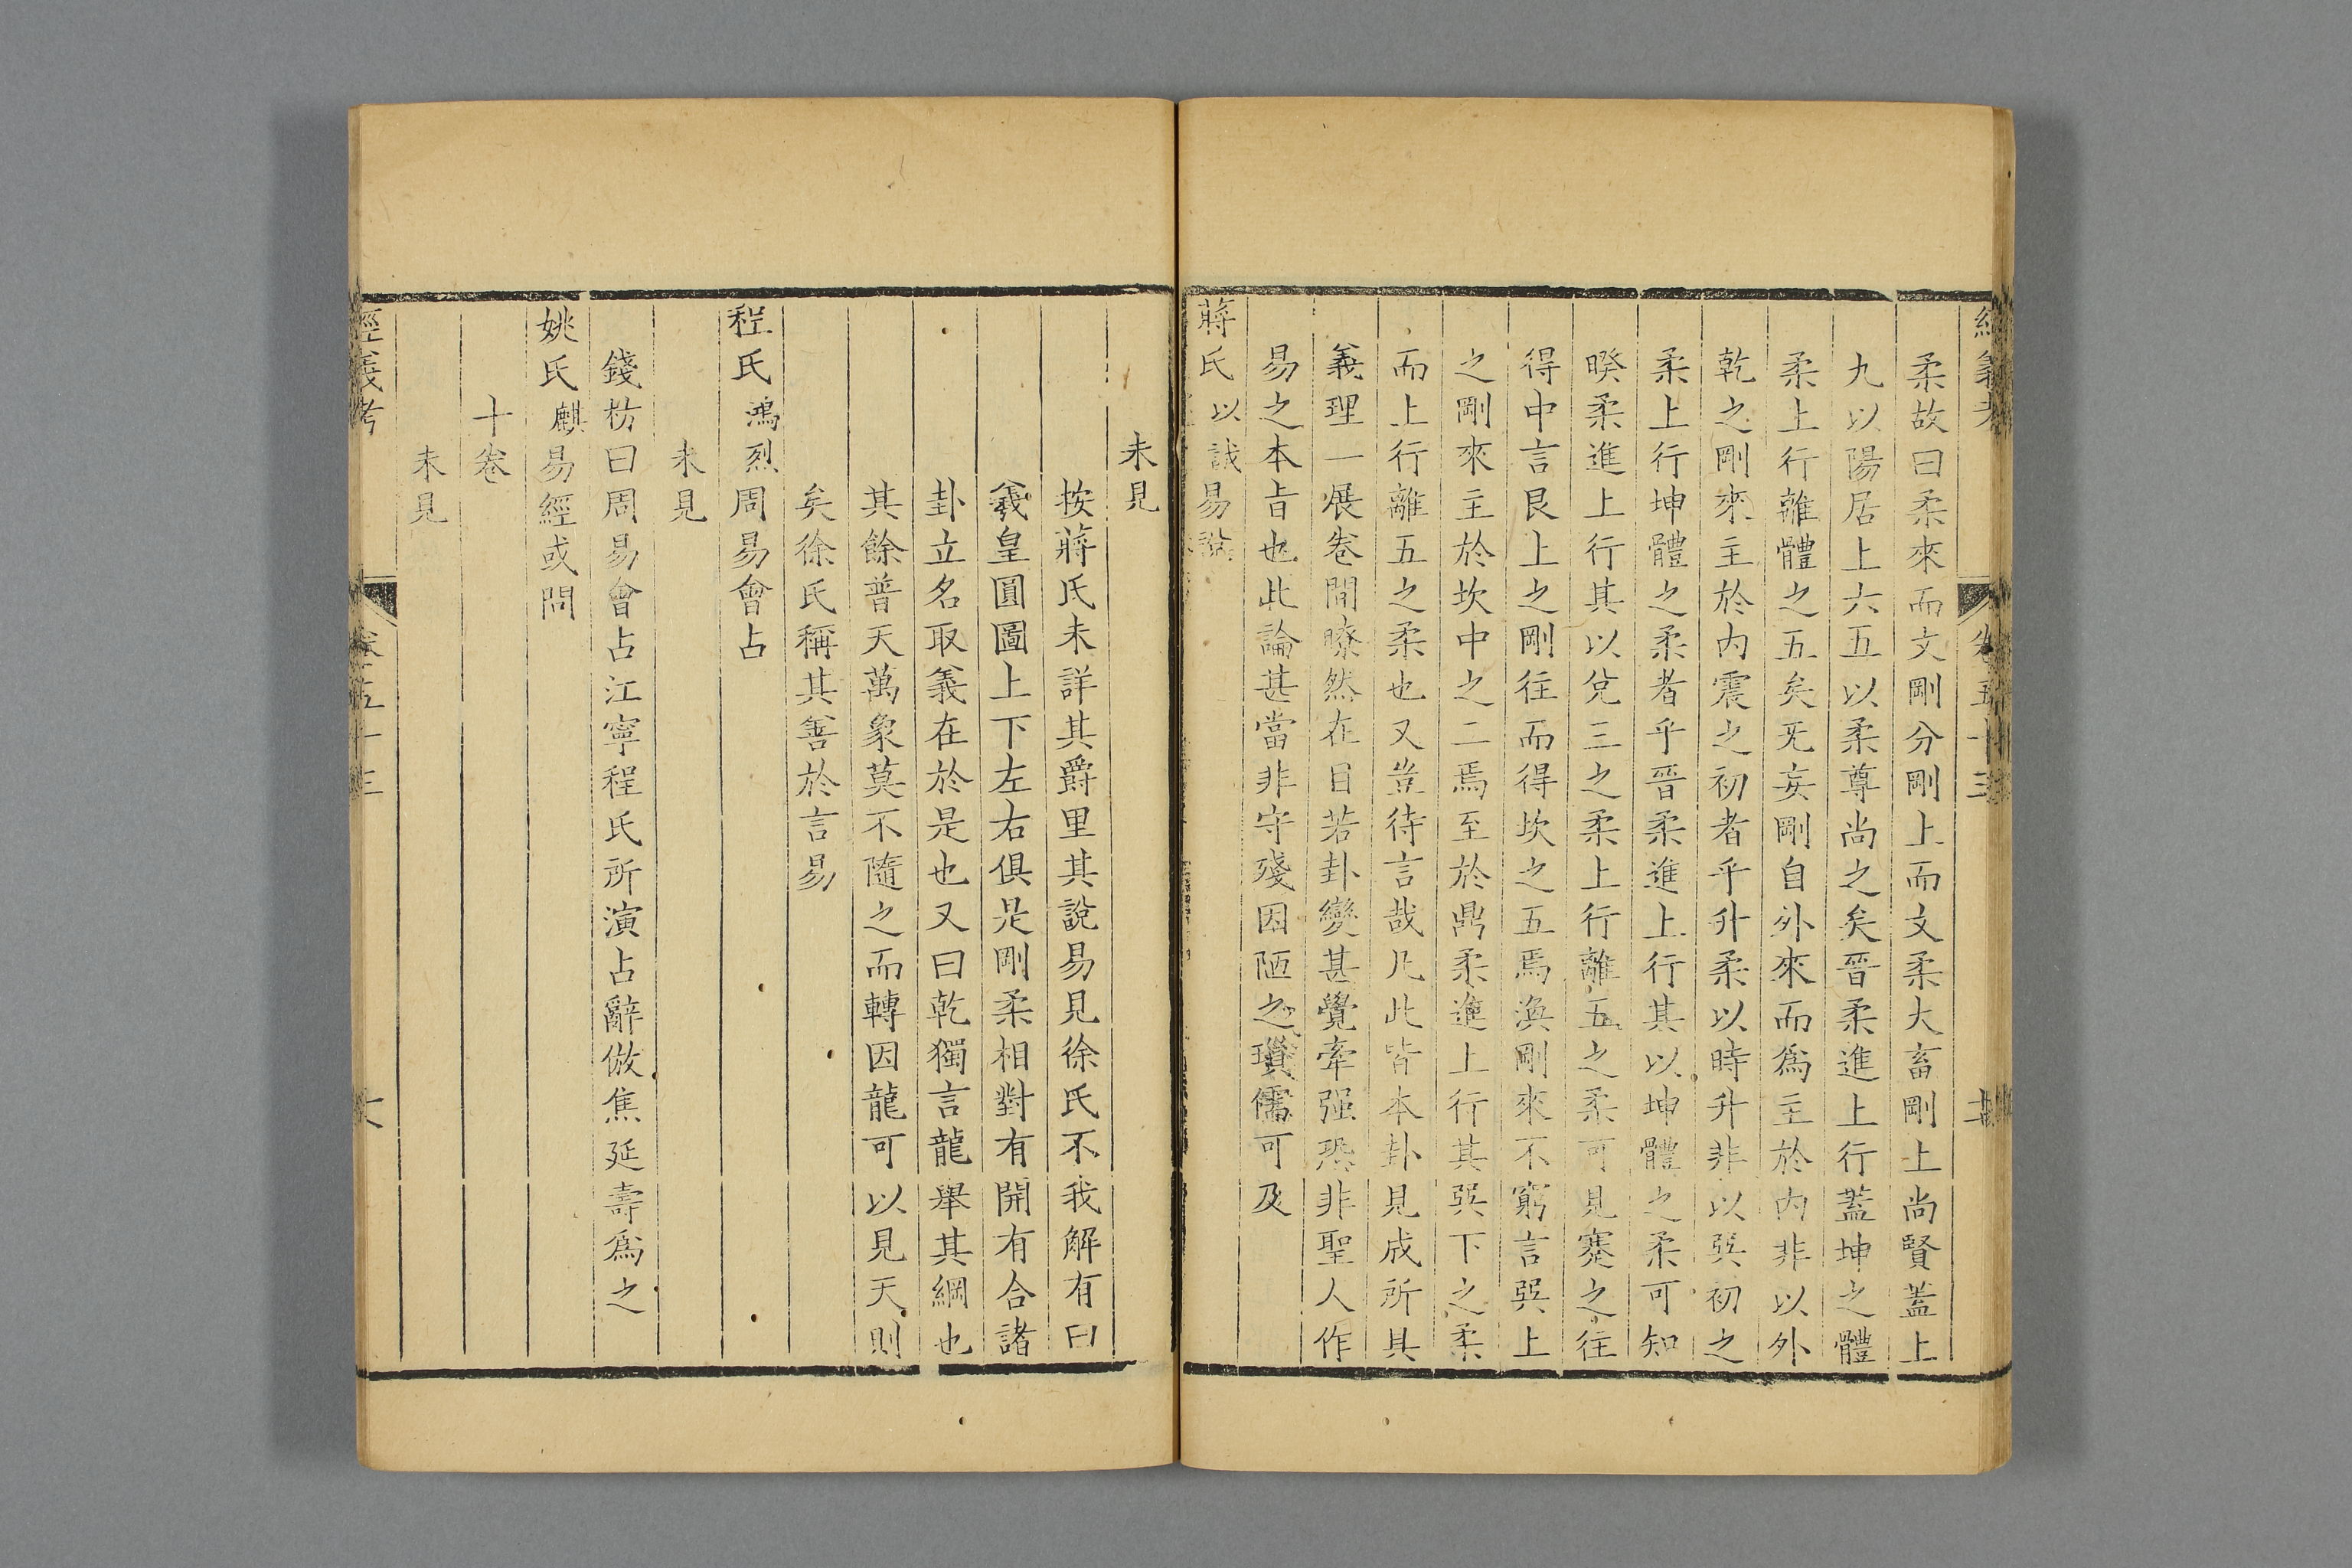 經義考 卷五十三
柔故曰柔來而文剛分剛上而文柔大畜剛上尚賢蓋上
九以陽居上六五以柔尊尚之矣晉柔進上行蓋坤之體
柔上行離體之五矣无妄剛自外來而爲主於內非以外
乾之剛來主於內震之初者乎升柔以時升非以巽初之
柔上行坤體之柔者乎晉柔進上行其以坤體之柔可知
睽柔進上行其以兌三之柔上行離五之柔可見蹇之往
得中言艮上之剛往而得坎之五焉渙剛來不窮言巽上
之剛來主於坎中之二焉至於鼎柔進上行其巽下之柔
而上行離五之柔也又豈待言哉凡此皆本卦見成所具
義理一展卷間瞭然在目若卦變甚覺牽强恐非聖人作
易之本旨也此論甚當非守殘因陋之瑣儒可及
蔣氏以誠易說
未見
按蔣氏未詳其爵里其說易見徐氏不我解有曰
羲皇圓圖上下左右俱是剛柔相對有開有合諸
卦立名取義在於是也又曰乾獨言龍舉其綱也
其餘普天萬象莫不隨之而轉因龍可以見天則
矣徐氏稱其善於言易
程氏鴻烈周易會占
未見
錢枋曰周易會占江寧程氏所演占辭倣焦延壽爲之
姚氏麒易經或問
十卷
未見
經義考 卷五十三